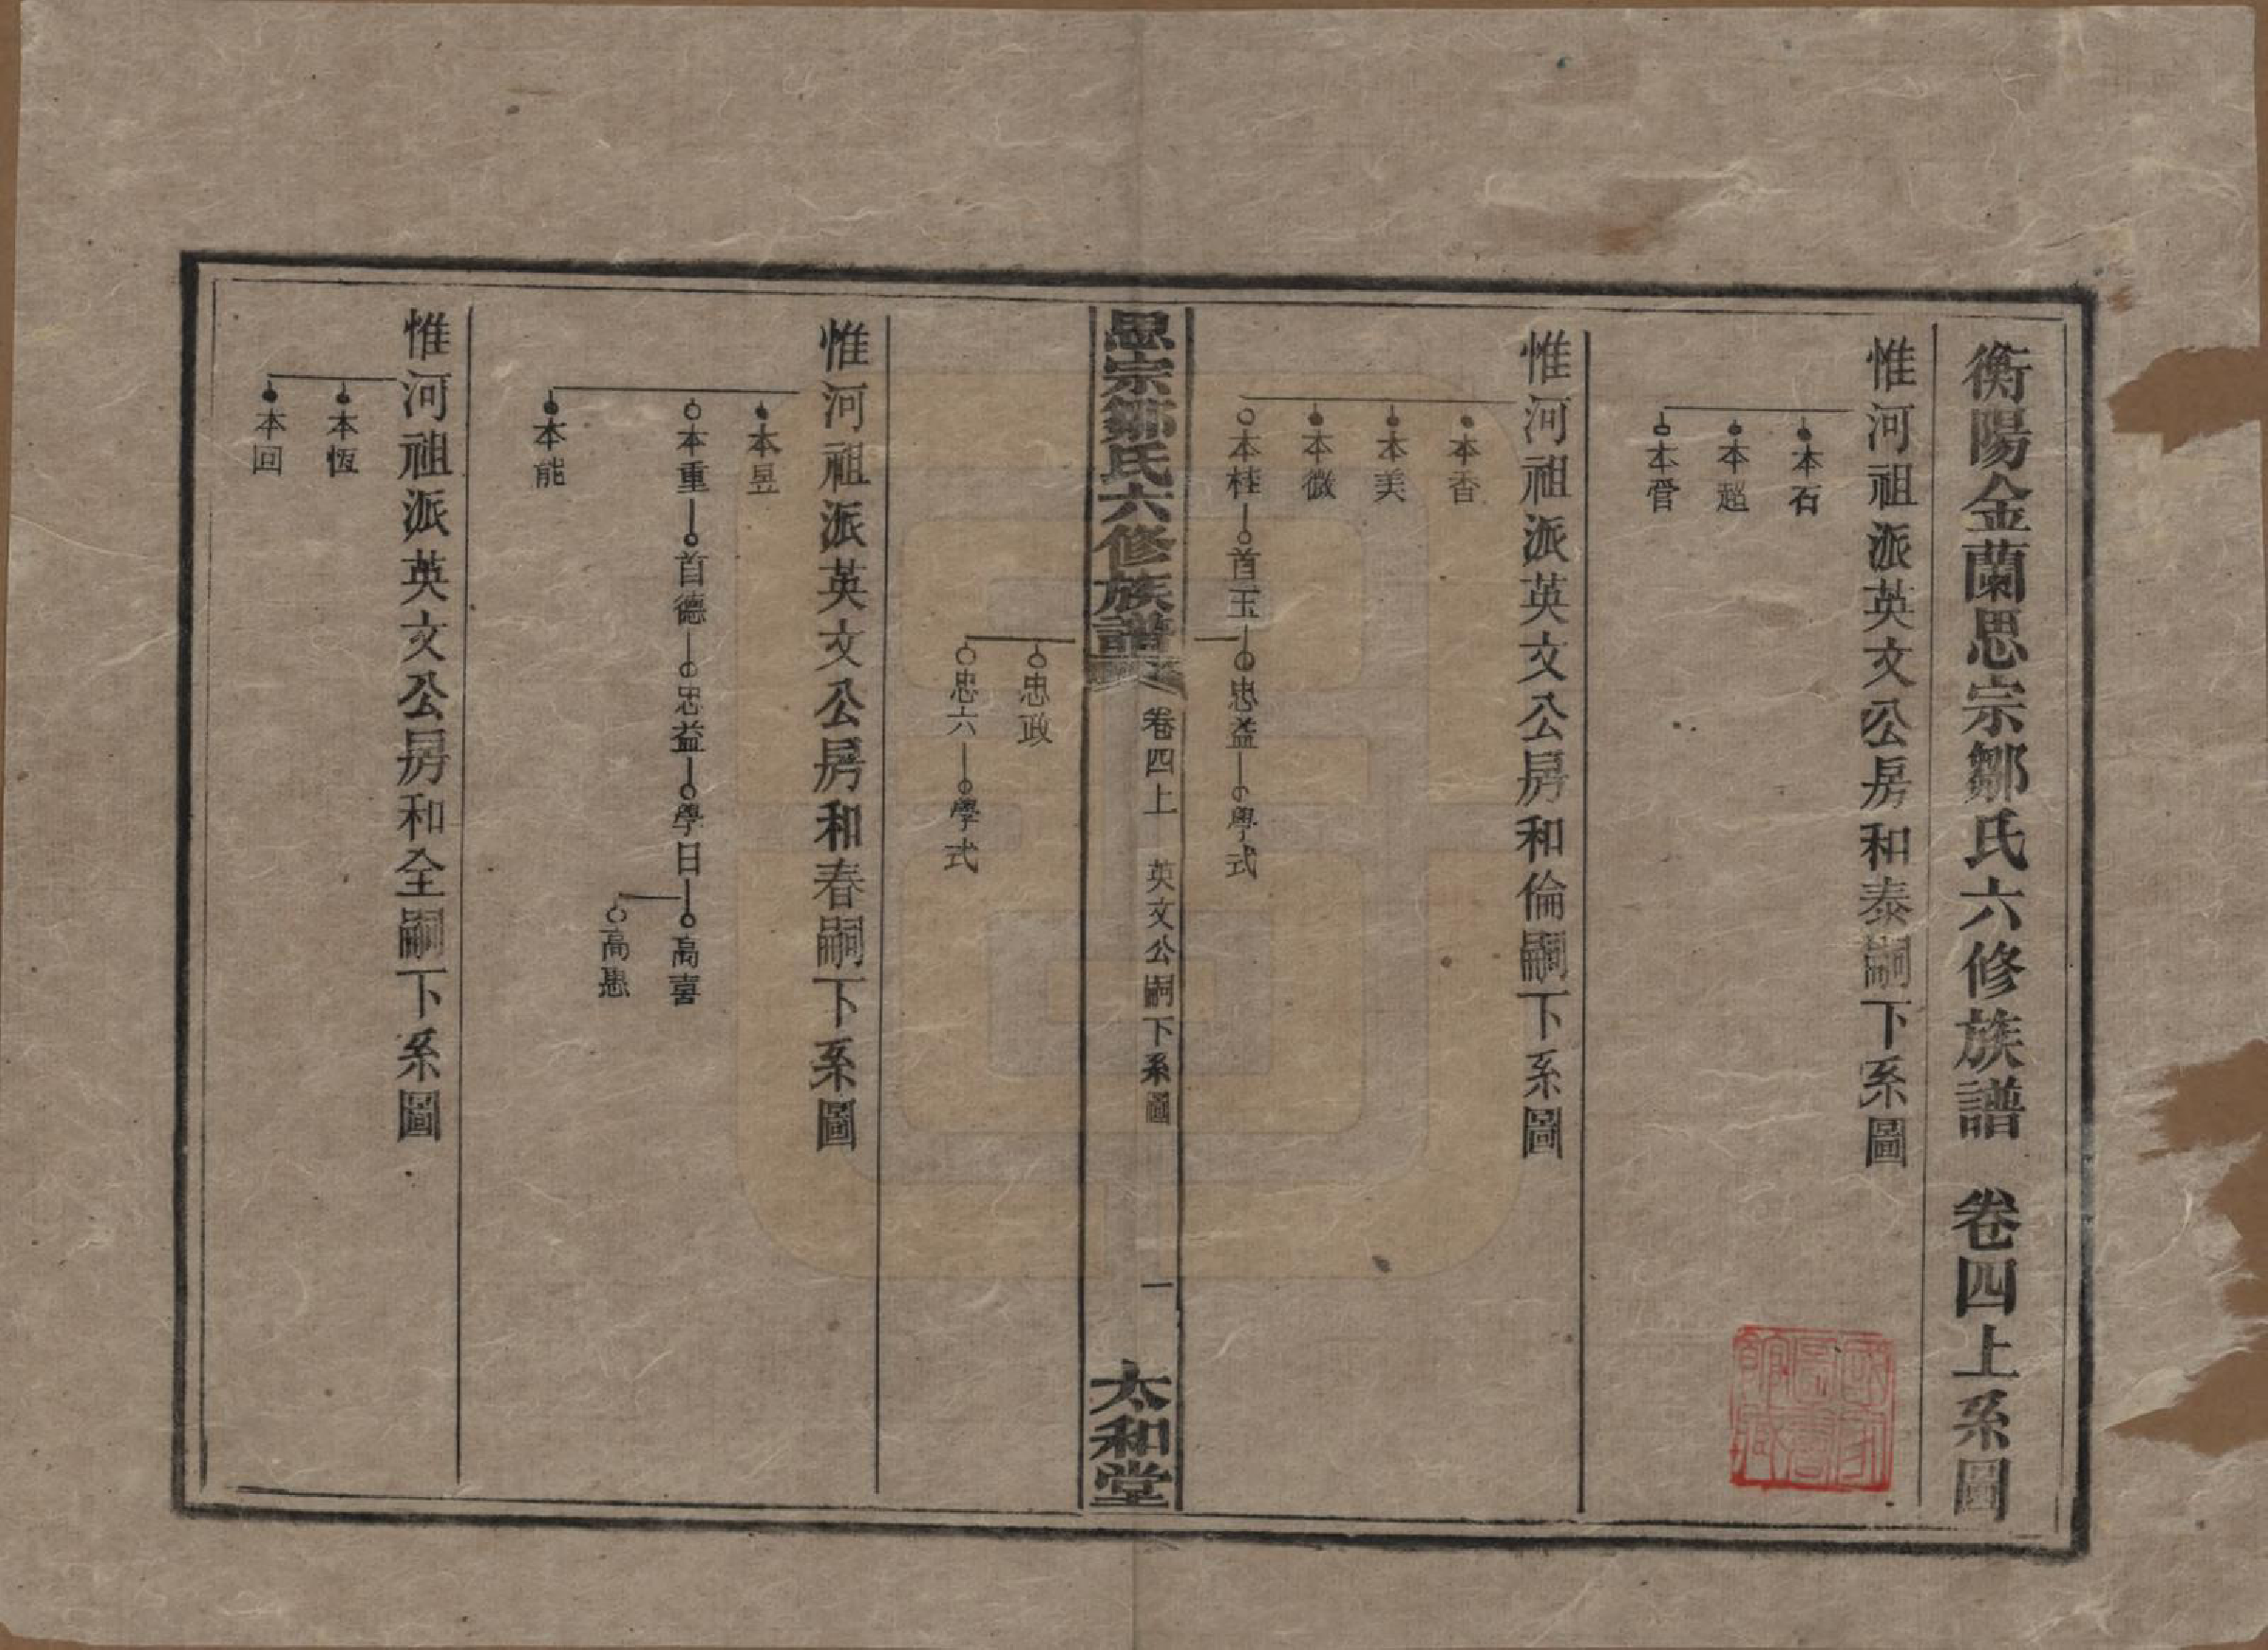 衡陽金蘭思宗鄒氏六修族譜 卷四上系圖
惟河祖派英文公房和泰嗣下系圖
本石
本超
惟河祖派英文公房和倫嗣下系圖
本香
本美
本微
本桂 首玉 忠益 學式
思宗鄒氏六修族譜 卷四上 英文公嗣下系圖 一 太和堂
忠政
忠六 學式
惟河祖派英文公房和春嗣下系圖
本昱
本重 首德 忠益 學日 高喜
高
本能
惟河祖派英文公房和全嗣下系圖
本恆
本回
國家圖書館藏